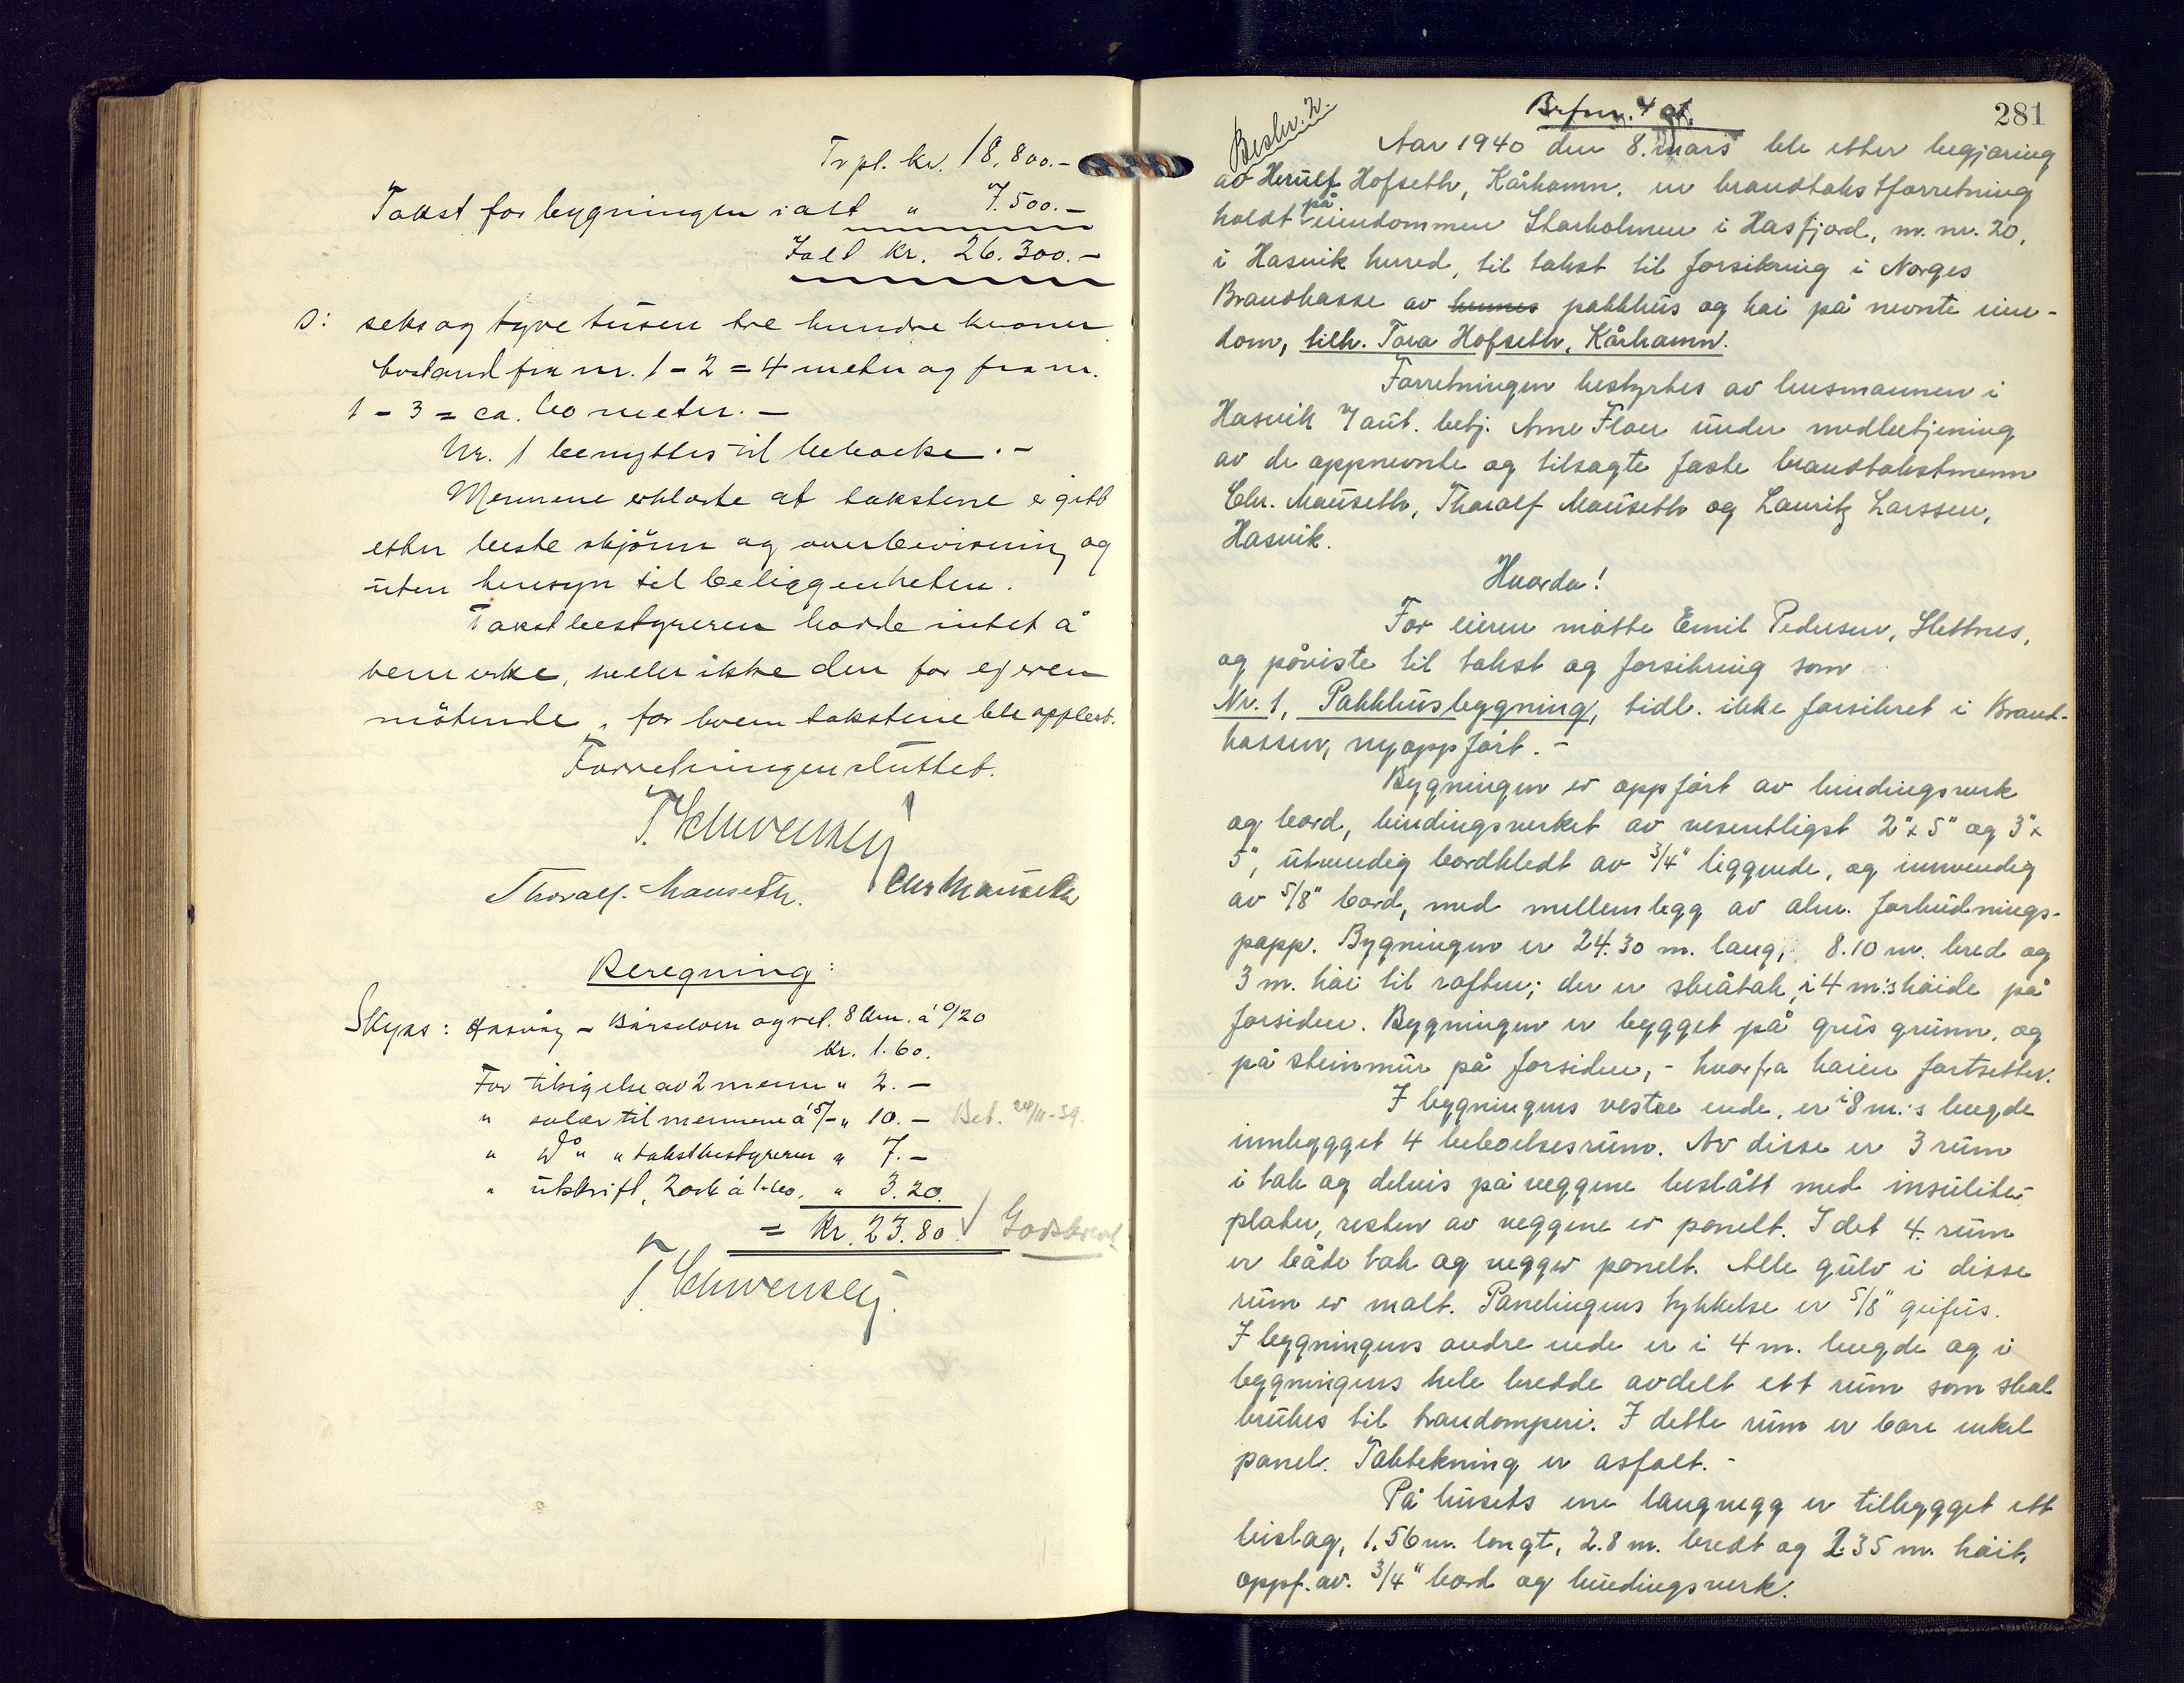 Trpl. kr. 18,800.-
Takst for bygningen ialt " 7.500.-
Ialt kr. 26.300.-
ɔ: seks og tyve tusen tre hundre kroner
Avstand fra nr. 1-2 = 4 meter og fra nr.
1-3 = ca. 60 meter. -
Nr. 1 benyttes til beboelse. -
Mennene erklærte at takstene er gitt
etter beste skjönn og overbevisning og
uten hensyn til beliggenheten.
Takstbestyreren hadde intet å
bemerke, heller ikke den for ejeren
mötende, for hvem takstene ble opplest.
Forretningen sluttet.
T. Schwensen
Thoralf Mauseth. Chr Mauseth
Beregning:
Skyss: Hasvåg - og ret. 8 km. à 0/20
kr. 1.60.
For tilsigelse av 2 menn " 2.-
" salær til mennene à 5/- " 10.- Bet. 24/11-39.
" Do " takstbestyreren " 7.-
" utskrift, 2 ark à 1.60. " 3.20.
= Kr. 23.80. Godskrevet
T. Schwensen
281
Brfnr. 4 gt.
Beskr. 2.
Aar 1940 den 8. mars ble etter begjæring
av Herulf Hofseth, Kårhamn, en brandtakstforretning
holdt på eiendommen Storholmen i Hasfjord, m. nr. 20,
i Hasvik herred, til takst til forsikring i Norges
Brandkasse av hennes pakkhus og kai på nevnte eien-
dom, tilh. Tora Hofseth, Kårhamn.
Forretningen bestyrtes av lensmannen i
Hasvik v/ aut. betj. Arne Floer under medbetjening
av de oppnevnte og tilsagte faste brandtakstmenn
Chr. Mauseth, Thoralf Mauseth og Lauritz Larssen,
Hasvik.
Hvorda!
For eieren mötte Emil Pedersen, Slettnes,
og påviste til takst og forsikring som
Nr. 1, Pakkhusbygning, tidl. ikke forsikret i Brand-
kassen, nyoppfört. -
Bygningen er oppfört av bindingsverk
og bord, bindingsverket av vesentligst 2"x 5" og 3"x
5", utvendig bordkledt av 3/4" liggende, og innvendig
av 5/8" bord, med mellemlegg av alm. forhudnings-
papp. Bygningen er 24.30 m. lang, 8.10 m. bred og
3 m. höi til raften; der er skråtak, i 4 m:s höide på
forsiden. Bygningen er bygget på grus grunn, og
på steinmur på forsiden, - hvorfra kaien fortsetter.
I bygningens vestre ende, er i 8 m:s lengde
innbygget 4 beboelsesrum. Av disse er 3 rum
i tak og delvis på veggene beslått med insulite-
plater, resten av veggene er panelt. I det 4. rum
er både tak og vegger panelt. Alle gulv i disse
rum er malt. Panelingens tykkelse er 5/8"
I bygningens andre ende er i 4 m. lengde og i
bygningens hele bredde avdelt ett rum som skal
brukes til trandamperi. I dette rum er bare enkel
panel. Taktekning er asfalt. -
På husets ene langvegg er tilbygget ett
bislag, 1.56 m. langt, 2.8 m. bredt og 2.35 m. höit,
oppf. av. 3/4" bord og bindingsverk.